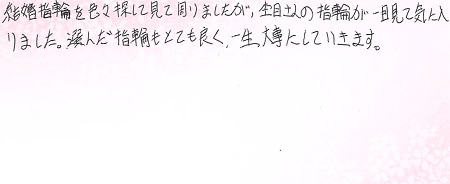 結婚指輪を色々探して見て周りましたが、生目土の指輪が一目見て気に入
りました。選んだ指輪もとても良く、一生大事にしていきます。